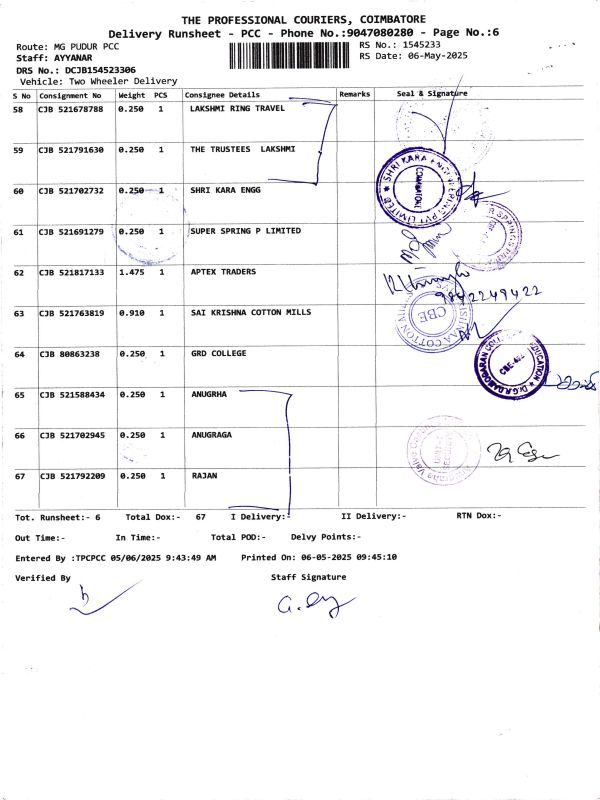 THE PROFESSIONAL COURIERS, COIMBATORE
Delivery Runsheet - PCC - Phone No.:9047080280 - Page No.:6
Route: MG PUDUR PCC
RS No.: 1545233
Staff: AYYANAR
RS Date: 06-May-2025
DRS No.: DCJB154523306
Vehicle: Two Wheeler Delivery
S No Consignment No Weight PCS Consignee Details Remarks Seal & Signature
58 CJB 521678788 0.250 1 LAKSHMI RING TRAVEL
59 CJB 521791630 0.250 1 THE TRUSTEES LAKSHMI
60 CJB 521702732 0.250 1 SHRI KARA ENGG
SHRI KARA ENGINEERING PVT LIMITED
COIMBATORE
61 CJB 521691279 0.250 1 SUPER SPRING P LIMITED
62 CJB 521817133 1.475 1 APTEX TRADERS
9842249422
63 CJB 521763819 0.910 1 SAI KRISHNA COTTON MILLS
CBE
64 CJB 80863238 0.250 1 GRD COLLEGE
65 CJB 521588434 0.250 1 ANUGRHA
66 CJB 521702945 0.250 1 ANUGRAGA
67 CJB 521792209 0.250 1 RAJAN
Tot. Runsheet:- 6 Total Dox:- 67 I Delivery:- II Delivery:- RTN Dox:-
Out Time:- In Time:- Total POD:- Delvy Points:-
Entered By :TPCPCC 05/06/2025 9:43:49 AM Printed On: 06-05-2025 09:45:10
Verified By Staff Signature